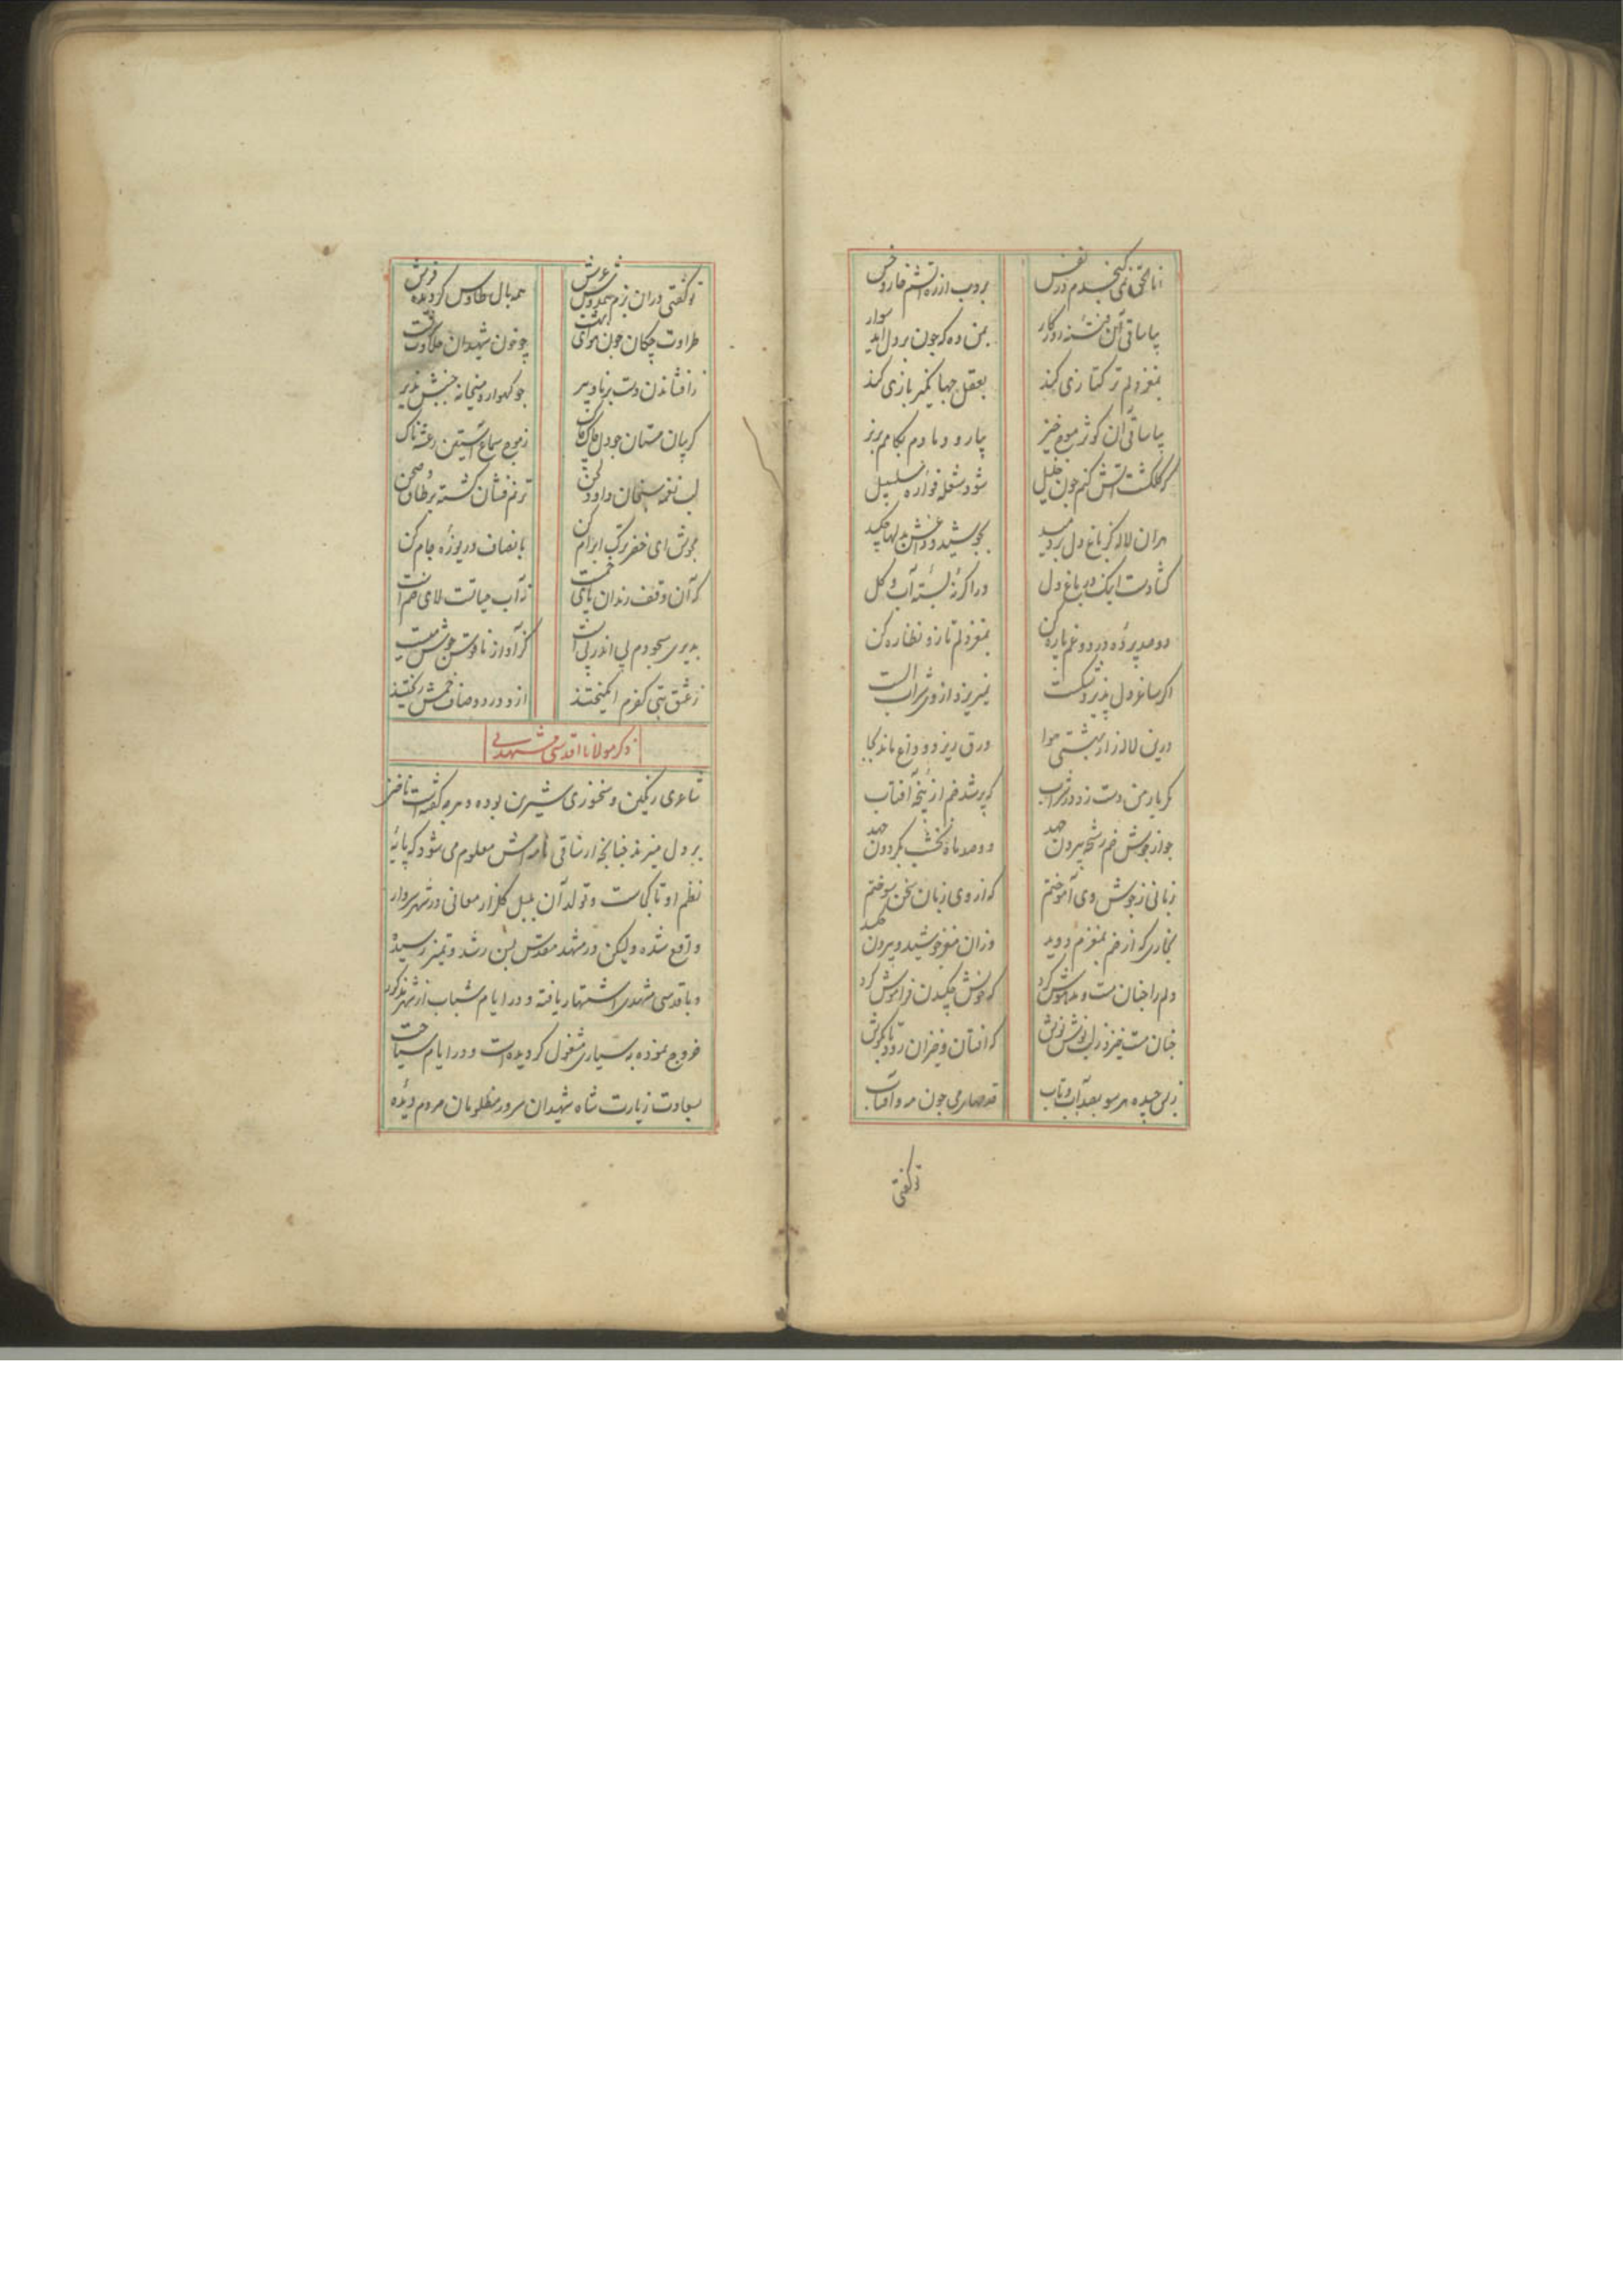 انا الحق نمی گنجدم در نفس بروب از ره آتشم خار و خس
بیا ساقی آن فتنه روزکار بمن ده که چون بر دل آید سوار
بمغز دلم ترکتازی کند بعقل جهانکیر بازی کند
بیا ساقی آن کوثر موج خیز بیار و دمادم بکامم بریز
که کلکشت آتش کنم چون خلیل شود شعله فواره سلسبیل
هر آن لاله کز باغ دل بر دمید بجوشید و خونش بلبها چکید
کشادست اینک در باغ دل در اکر نه بسته آب و کل
دو صد پرده درد و غم پاره کن بمغز دلم تاز و نظاره کن
اکر ساغر دل پذیرد شکست نمیریزد از وی شراب الست
درین لاله زار بهشتی هوا ورق ریزد و داغ ماند بجا
مکر یار من دست زد در شراب که پر شد خم از پنجه آفتاب
چو از جوش خم رشحه بیرون جهد دو صد ماه نخشب بکردون جهد
زبانی ز جوش وی آموختم که از وی زبان سخن سوختم
بخاری که از خم بمغزم دوید وزان مغز جوشید و بیرون
دلم را چنان مست و مدهوش کرد که خونش چکیدن فراموش کرد
چنان مست خیزد ز لب نوش نوش که افتان و خیزان رود تا بکوش
زبس چیده هر سو بصد آب و تاب قدحهای می چون مه و آفتاب
تو کفتی
تو کفتی در ان بزم همه بال طاوس کردیده فرش
طراوت چکان چون هوای بهشت چو خون شهیدان
ز افشاندن دست برنا و پیر چو کهواره میخانه جنبش پذیر
کریبان مستان چو دل چاک چاک ز موج سماع آستین رعشه ناک
لب نغمه سنجان داود لحن ترنم فشان کشته بر طاق و صحن
بجوش ای خضر ترک ابرام کن بانصاف دریوزه جام کن
که آن وقف رندان نه آب حیاتست لای خم است
بدیری سجودم پی اندر پی است کز آواز ناقوس جوش
ز عشق بتی کفرم انکیختند از و درد و صاف خمش ریختند
ذکر مولانا اقدسی مشهدی
شاعری رنکین و سخنوری شیرین بوده و هر چه کفته است ناخن
بر دل میزند چنانچه از ساقی نامه اش معلوم می شود که پایهٔ
نظم او تا کجاست و تولد آن بلبل کلزار معانی در شهر سبزوار
واقع شده ولیکن در مشهد مقدس بسن رشد و تمیز رسیده
و باقدسی مشهدی اشتهار یافته و در ایام شباب از شهر مذکور
خروج نموده به سیاری مشغول کردیده است و در ایام سیاحت
بسعادت زیارت شاه شهیدان سرور مظلومان مردم دیدهٔ